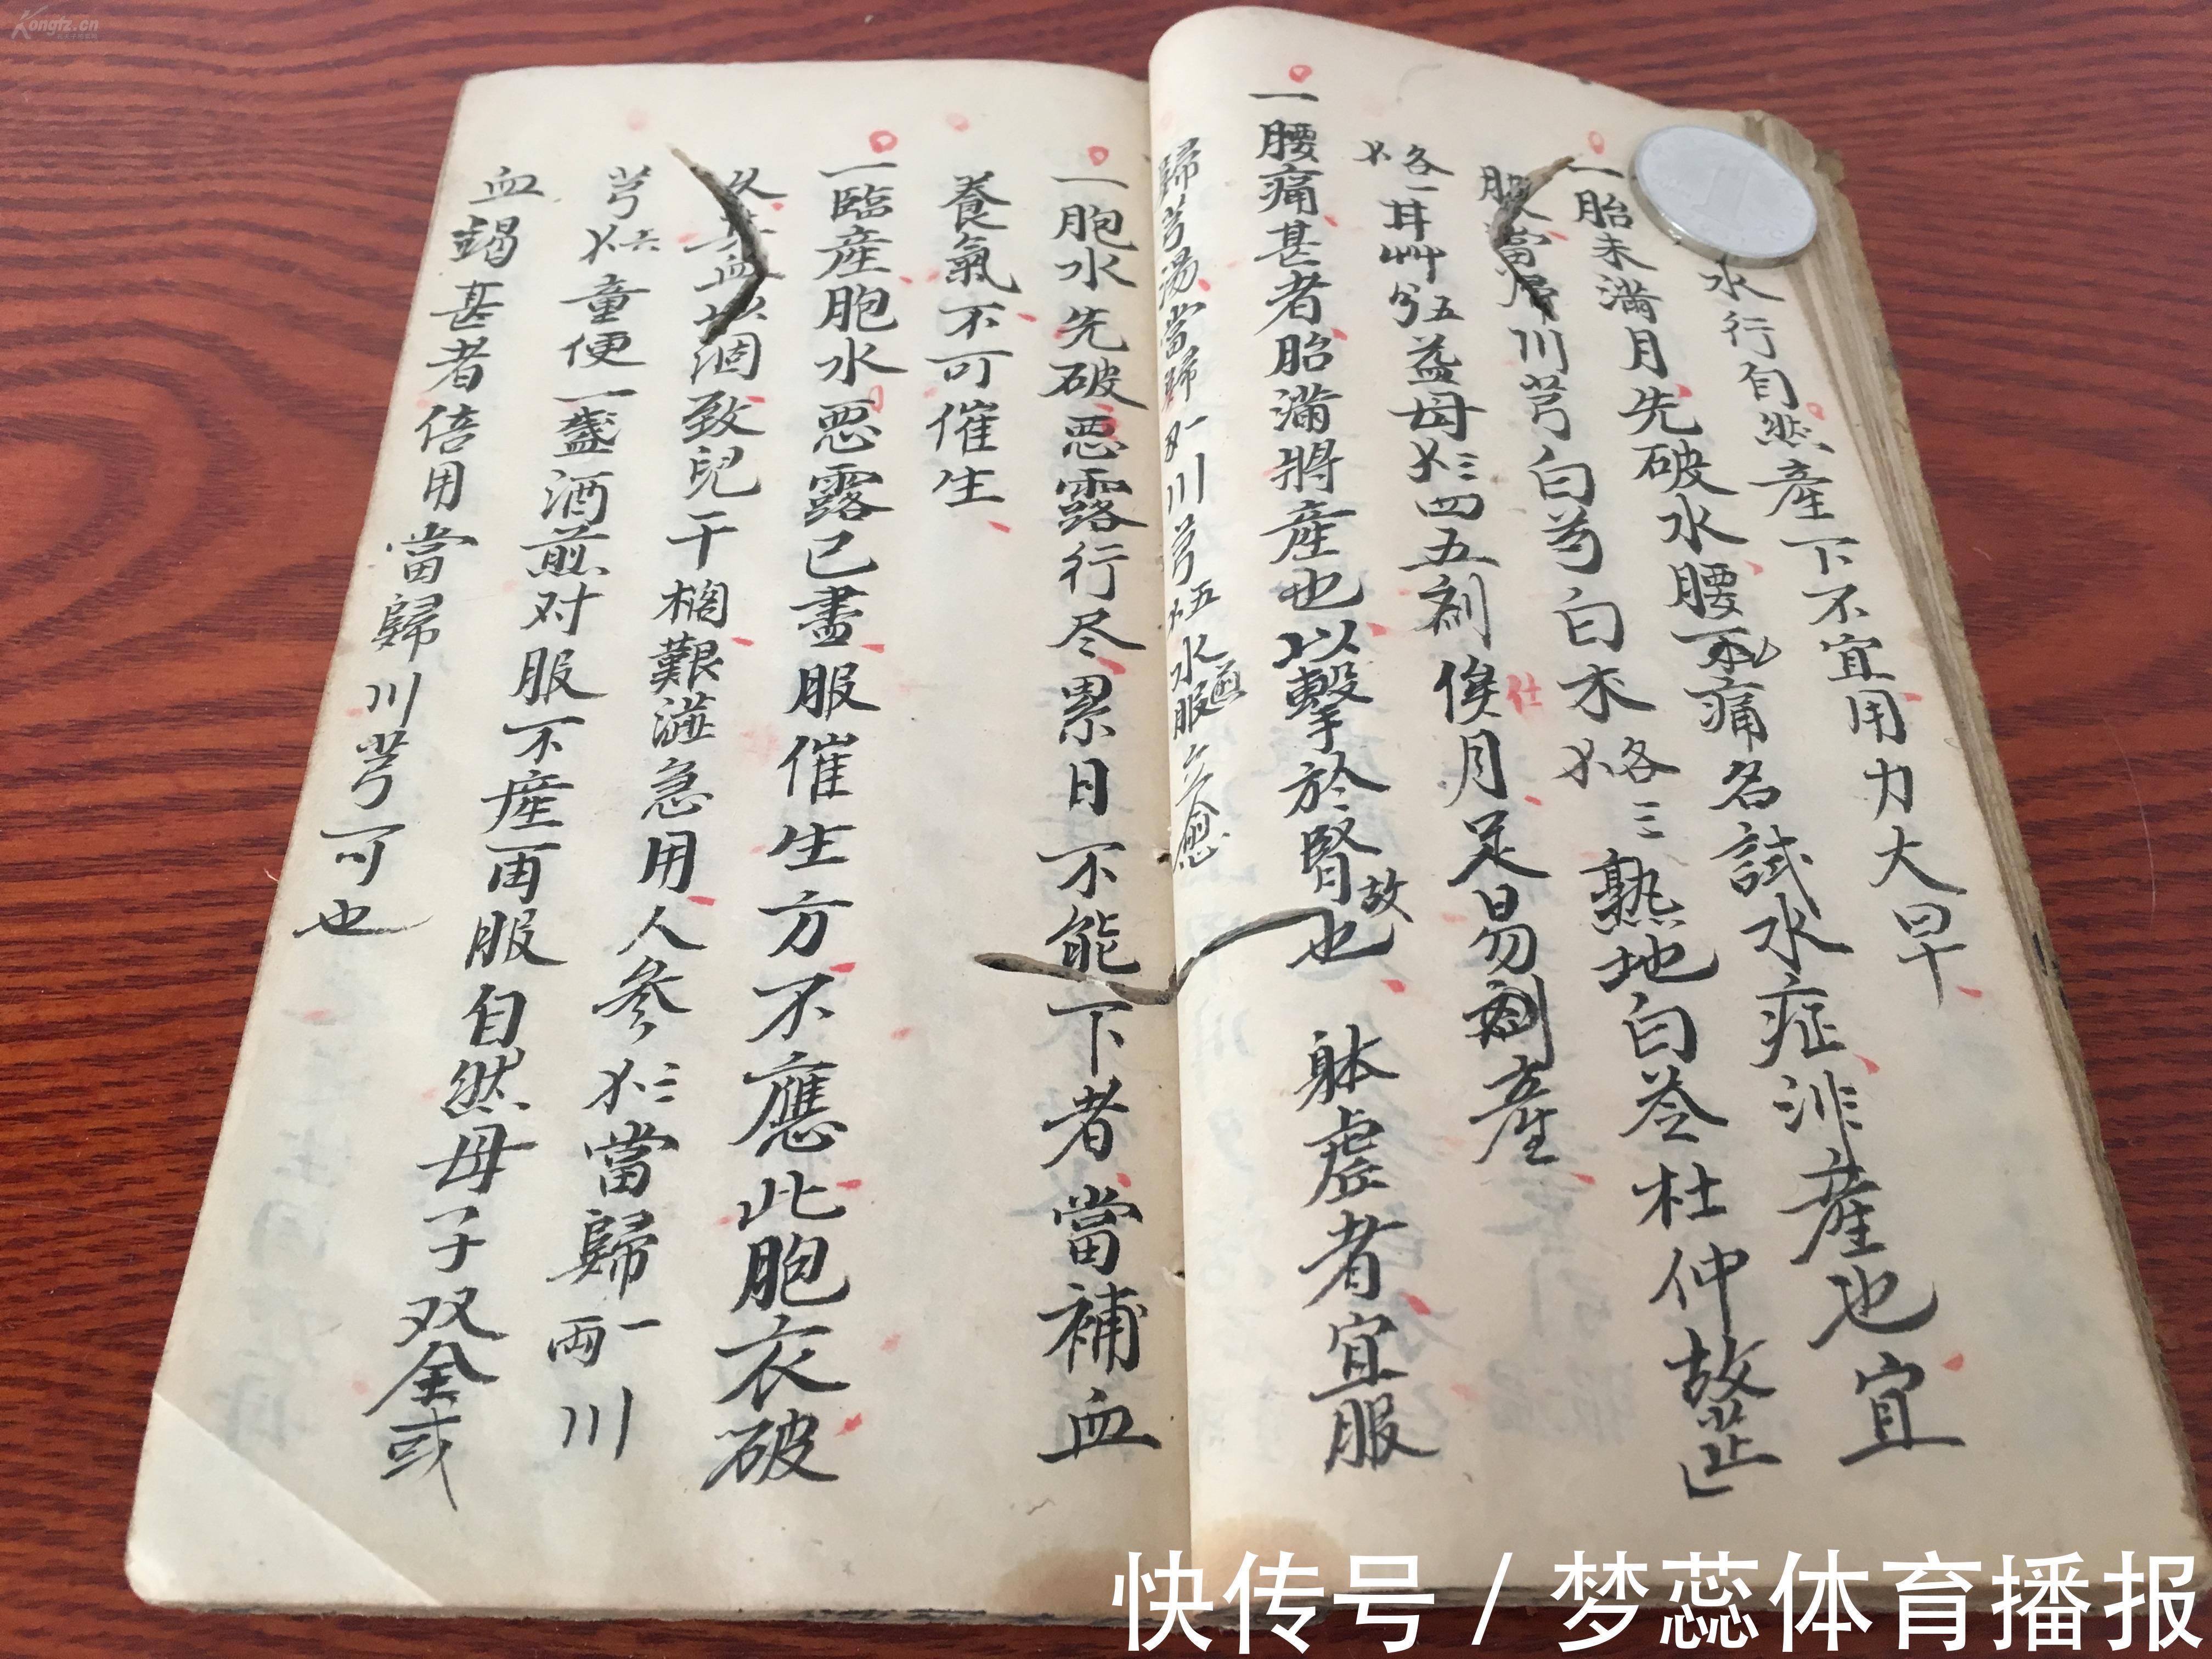 水行自然產下不宜用力大早
一胎未滿月先破水腰不痛名試水症非產也宜
服當歸川芎白芍白朮各三熟地白苓杜仲故芷
各一甘艸五益母三四五剂俟月足易產
一腰痛甚者胎滿將產也以擊於腎故也 躰虛者宜服
歸芎湯當歸一川芎五水煎服立愈
一胞水先破惡露行尽累日不能下者當補血
養氣不可催生
一臨產胞水惡露已盡服催生方不應此胞衣破
久 血 涸致兒干棝艱澁急用人參三當歸一兩川
芎六童便一盞酒煎对服不產再服自然母子双全或
血竭甚者倍用當歸川芎可也
Kongfz.cn
快传号/梦蕊体育播报